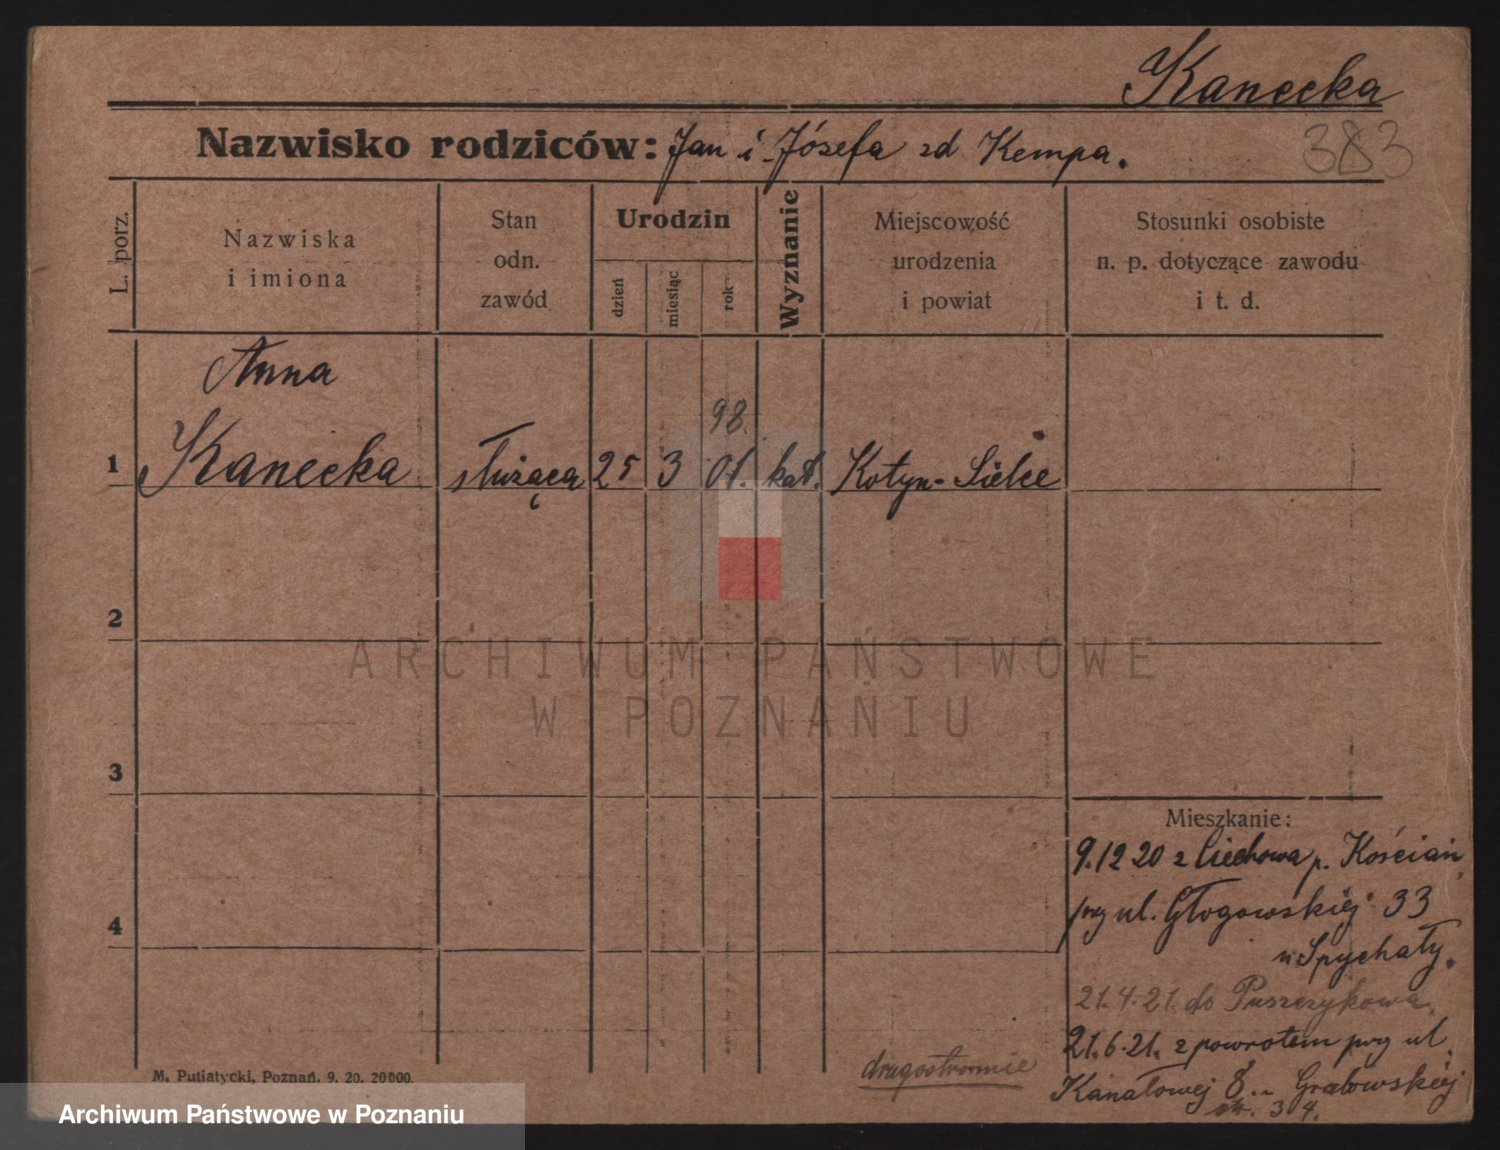 Kanecka
Nazwisko rodziców: Jan i Józefa zd Kempa.
383
L. porz.
Nazwiska
i imiona
Stan
odn.
zawód
Urodzin
dzień
miesiąc
rok
Wyznanie
Miejscowość
urodzenia
i powiat
Stosunki osobiste
n. p. dotyczące zawodu
i t. d.
Anna
98.
1 Kanecka służąca 25 3 01. kat. Kotyn - Sielce
2
3
4
Mieszkanie:
9.12 20 z Ciechowa p. Kościan,
przy ul. Głogowskiej 33
u Spychały.
21.4.21. do Puszczykowa.
21.6.21. z powrotem przy ul.
Kanałowej 8 u Grabowskiej
str. 34.
drugostronnie
M. Putiatycki, Poznań. 9. 20. 20000.
ARCHIWUM PAŃSTWOWE
W POZNANIU
Archiwum Państwowe w Poznaniu